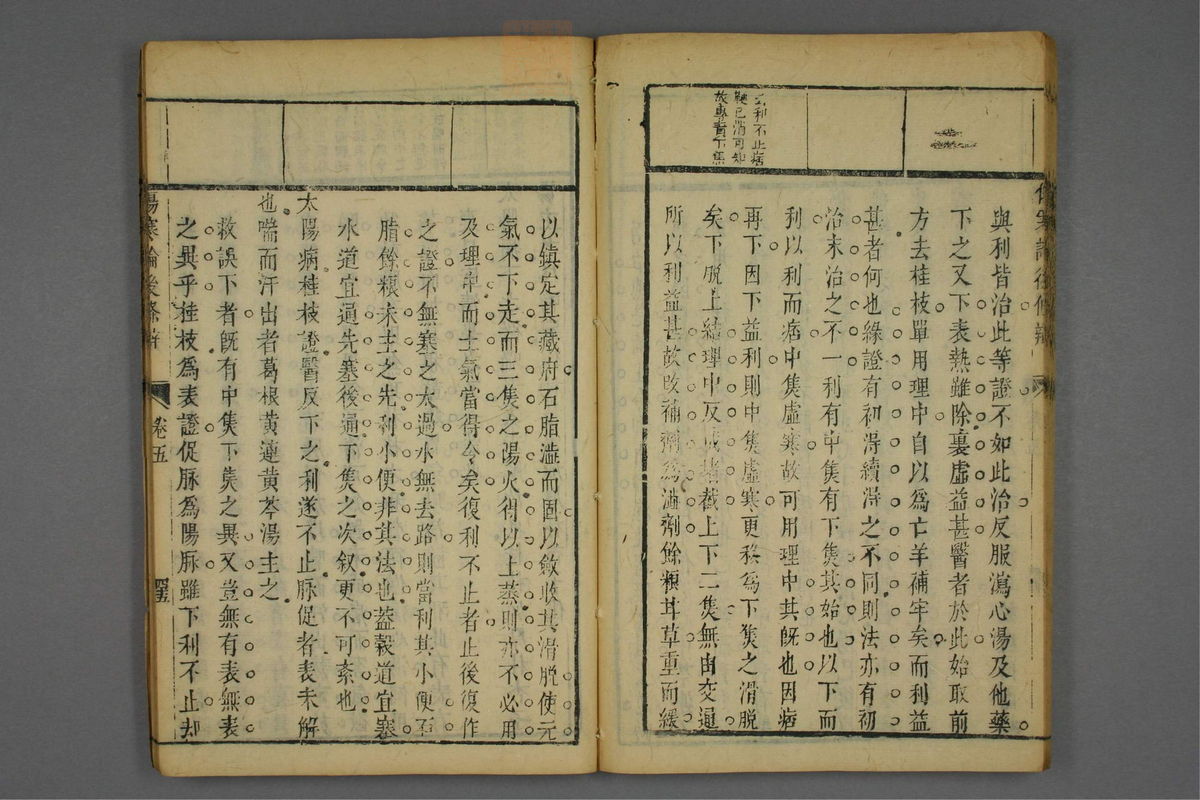 利不止痞
鞕已消可知
故專責下焦
與利皆治此等證不如此治反服瀉心湯及他藥
下之又下表熱雖除裏虛益甚醫者於此始取前
方去桂枝單用理中自以爲亡羊補牢矣而利益
甚者何也緣證有初得續得之不同則法亦有初
治末治之不一利有中隻有下隻其始也以下而
利以利而痞中隻虛寒故可用理中其旣也因痞
再下因下益利則中隻虛寒更移爲下隻之滑脫
矣下脫上結理中反成堵截上下二隻無由交通
所以利益甚故改補劑爲濇劑餘粮甘草重而緩
以鎮定其藏府石脂濇而固以斂收其滑脫使元
氣不下走而三隻之陽火得以上蒸則亦不必用
及理中而土氣當得令矣復利不止者止後復作
之證不無塞之太過水無去路則當利其小便至
脂餘粮未主之先利小便非其法也蓋穀道宜塞
水道宜通先塞後通下隻之次叙更不可紊也
太陽病桂枝證醫反下之利遂不止脉促者表未解
也喘而汗出者葛根黃蓮黃芩湯主之
救誤下者旣有中隻下隻之異又豈無有表無表
之異乎桂枝爲表證促脉爲陽脉雖下利不止却
傷寒論後條辨
卷五